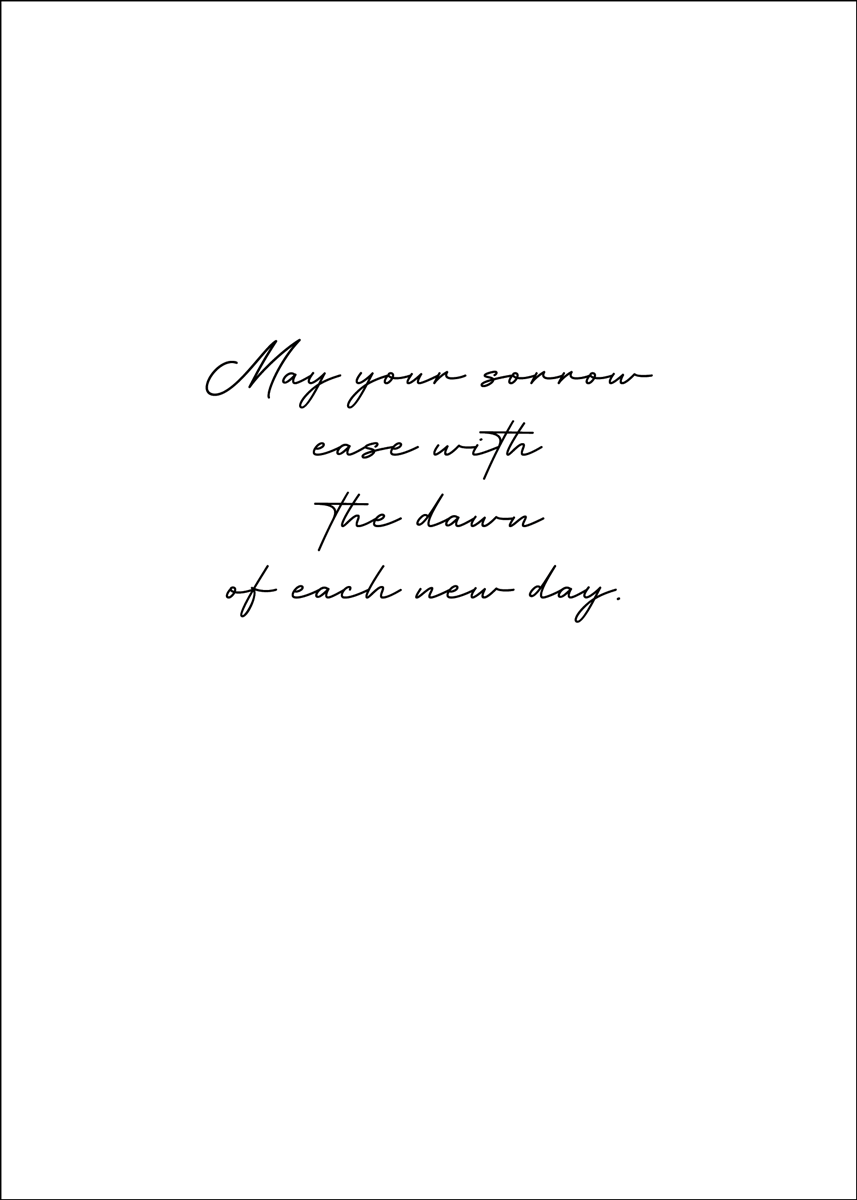 May your sorrow
ease with
the dawn
of each new day.